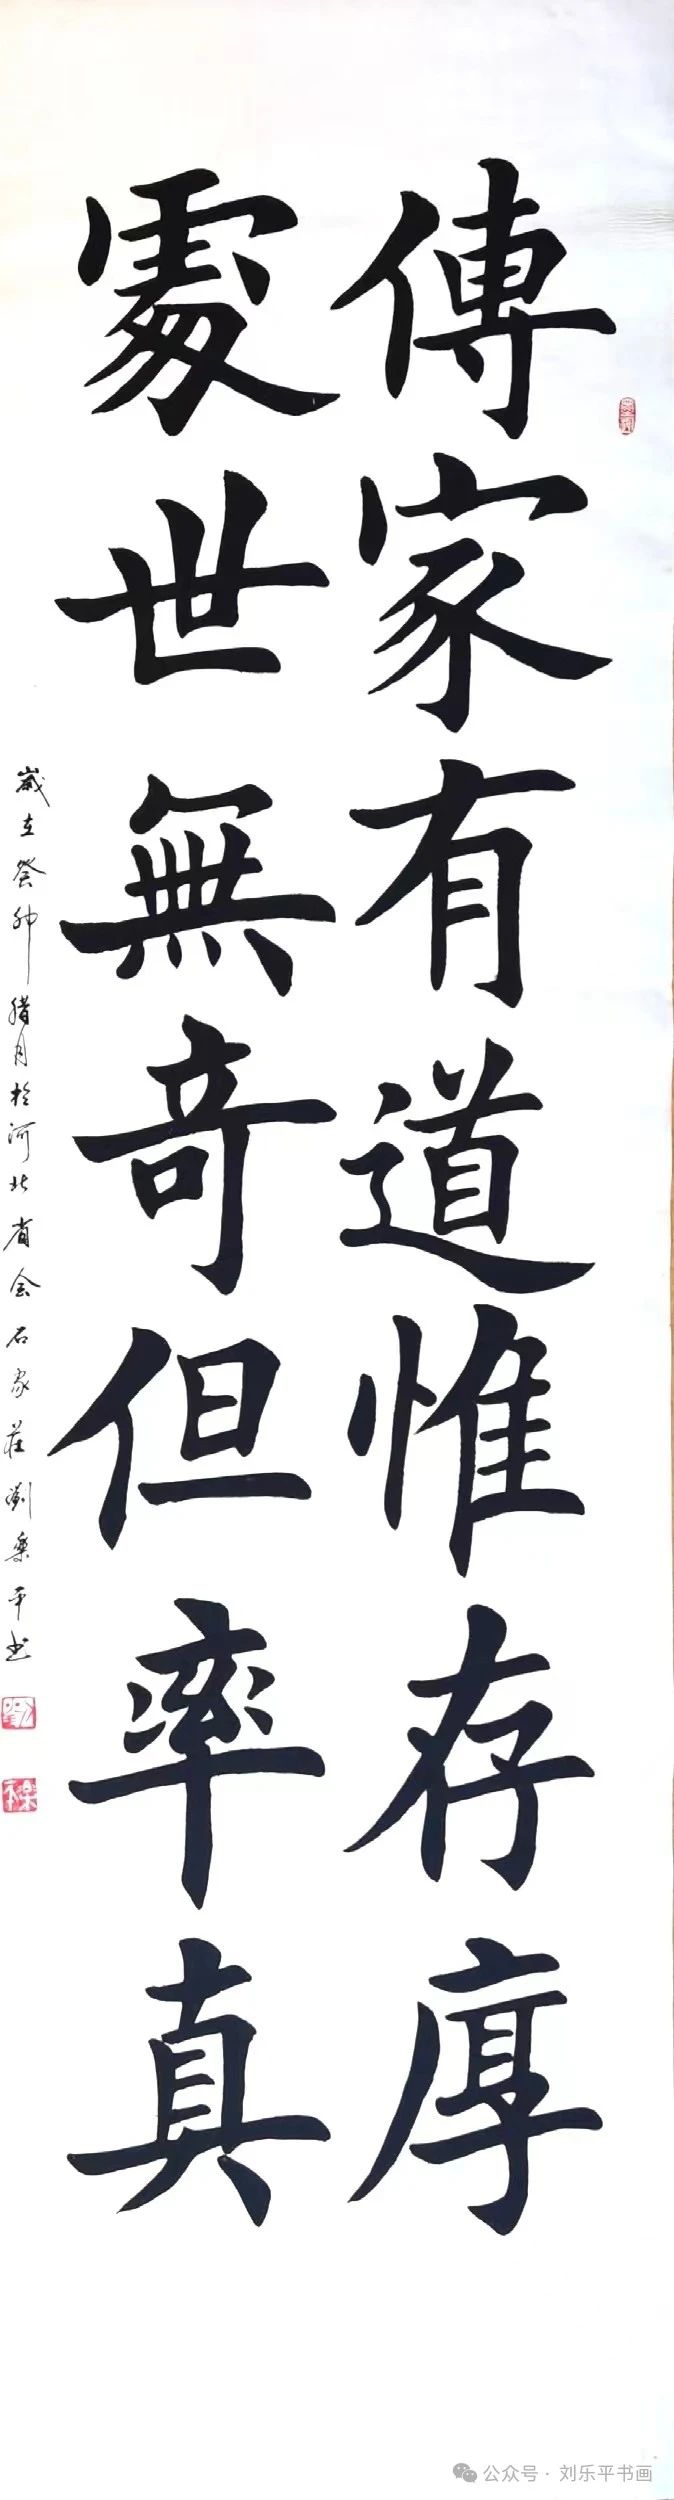 傳家有道惟存厚
處世無奇但率真
歲在癸卯腊月於河北省会石家莊劉樂平书
公众号·刘乐平书画